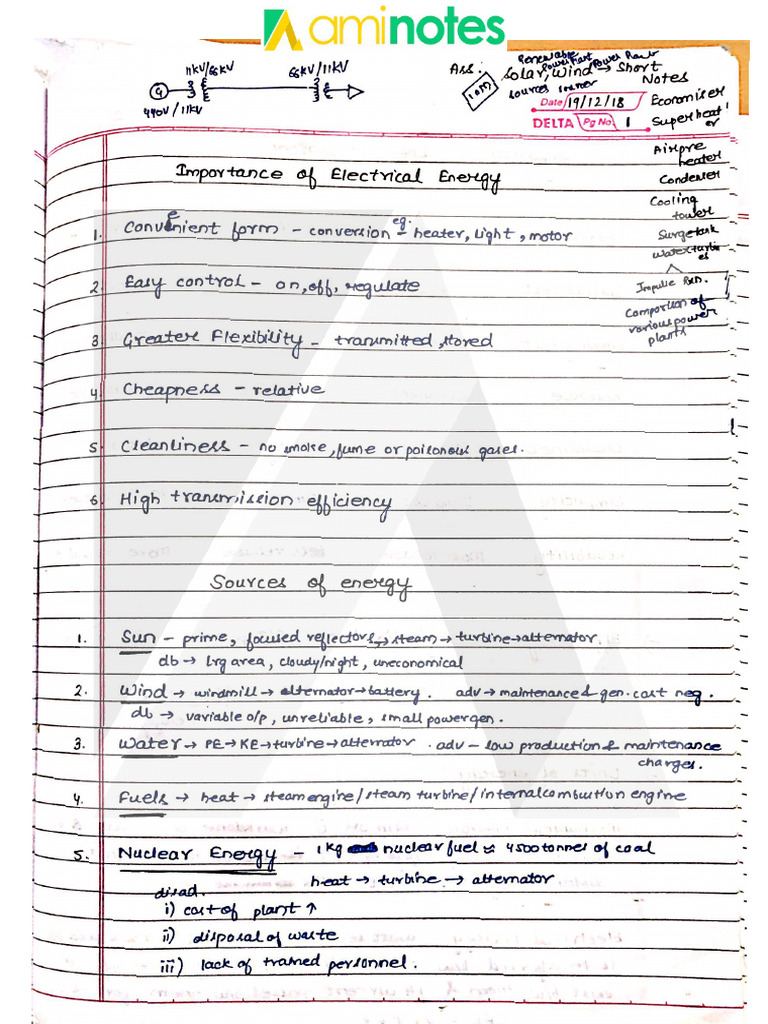 aminotes
11KV/66KV
66KV/11KV
G
440V/11KV
Ass:
Renewable
Power Plant
Power Plant
Solar, Wind → Short
Notes
sources
Date 19/12/18
DELTA Pg No. 1
Economiser
Superheater
Airpre
heater
Condenser
Cooling
tower
Surgetank
Water turbin
es
Impulse Rxn.
Comparison of
various power
plants
Importance of Electrical Energy
1. Convenient form - conversion - eg. heater, light, motor
2. Easy control - on, off, regulate
3. Greater Flexibility - transmitted, stored
4. Cheapness - relative
5. Cleanliness - no smoke, fume or poisonous gases.
6. High transmission efficiency
Sources of energy
1. Sun - prime, focused reflectors → steam → turbine → alternator.
db → lrg area, cloudy/night, uneconomical
2. Wind → windmill → alternator → battery. adv → maintenance & gen. cost neg.
db → variable o/p, unreliable, small power gen.
3. Water → PE → KE → turbine → alternator. adv - low production & maintenance
charges.
4. Fuels → heat → steam engine/steam turbine/internal combustion engine
5. Nuclear Energy - 1 kg nuclear fuel ≈ 4500 tonnes of coal
heat → turbine → alternator
disad.
i) cost of plant ↑
ii) disposal of waste
iii) lack of trained personnel.